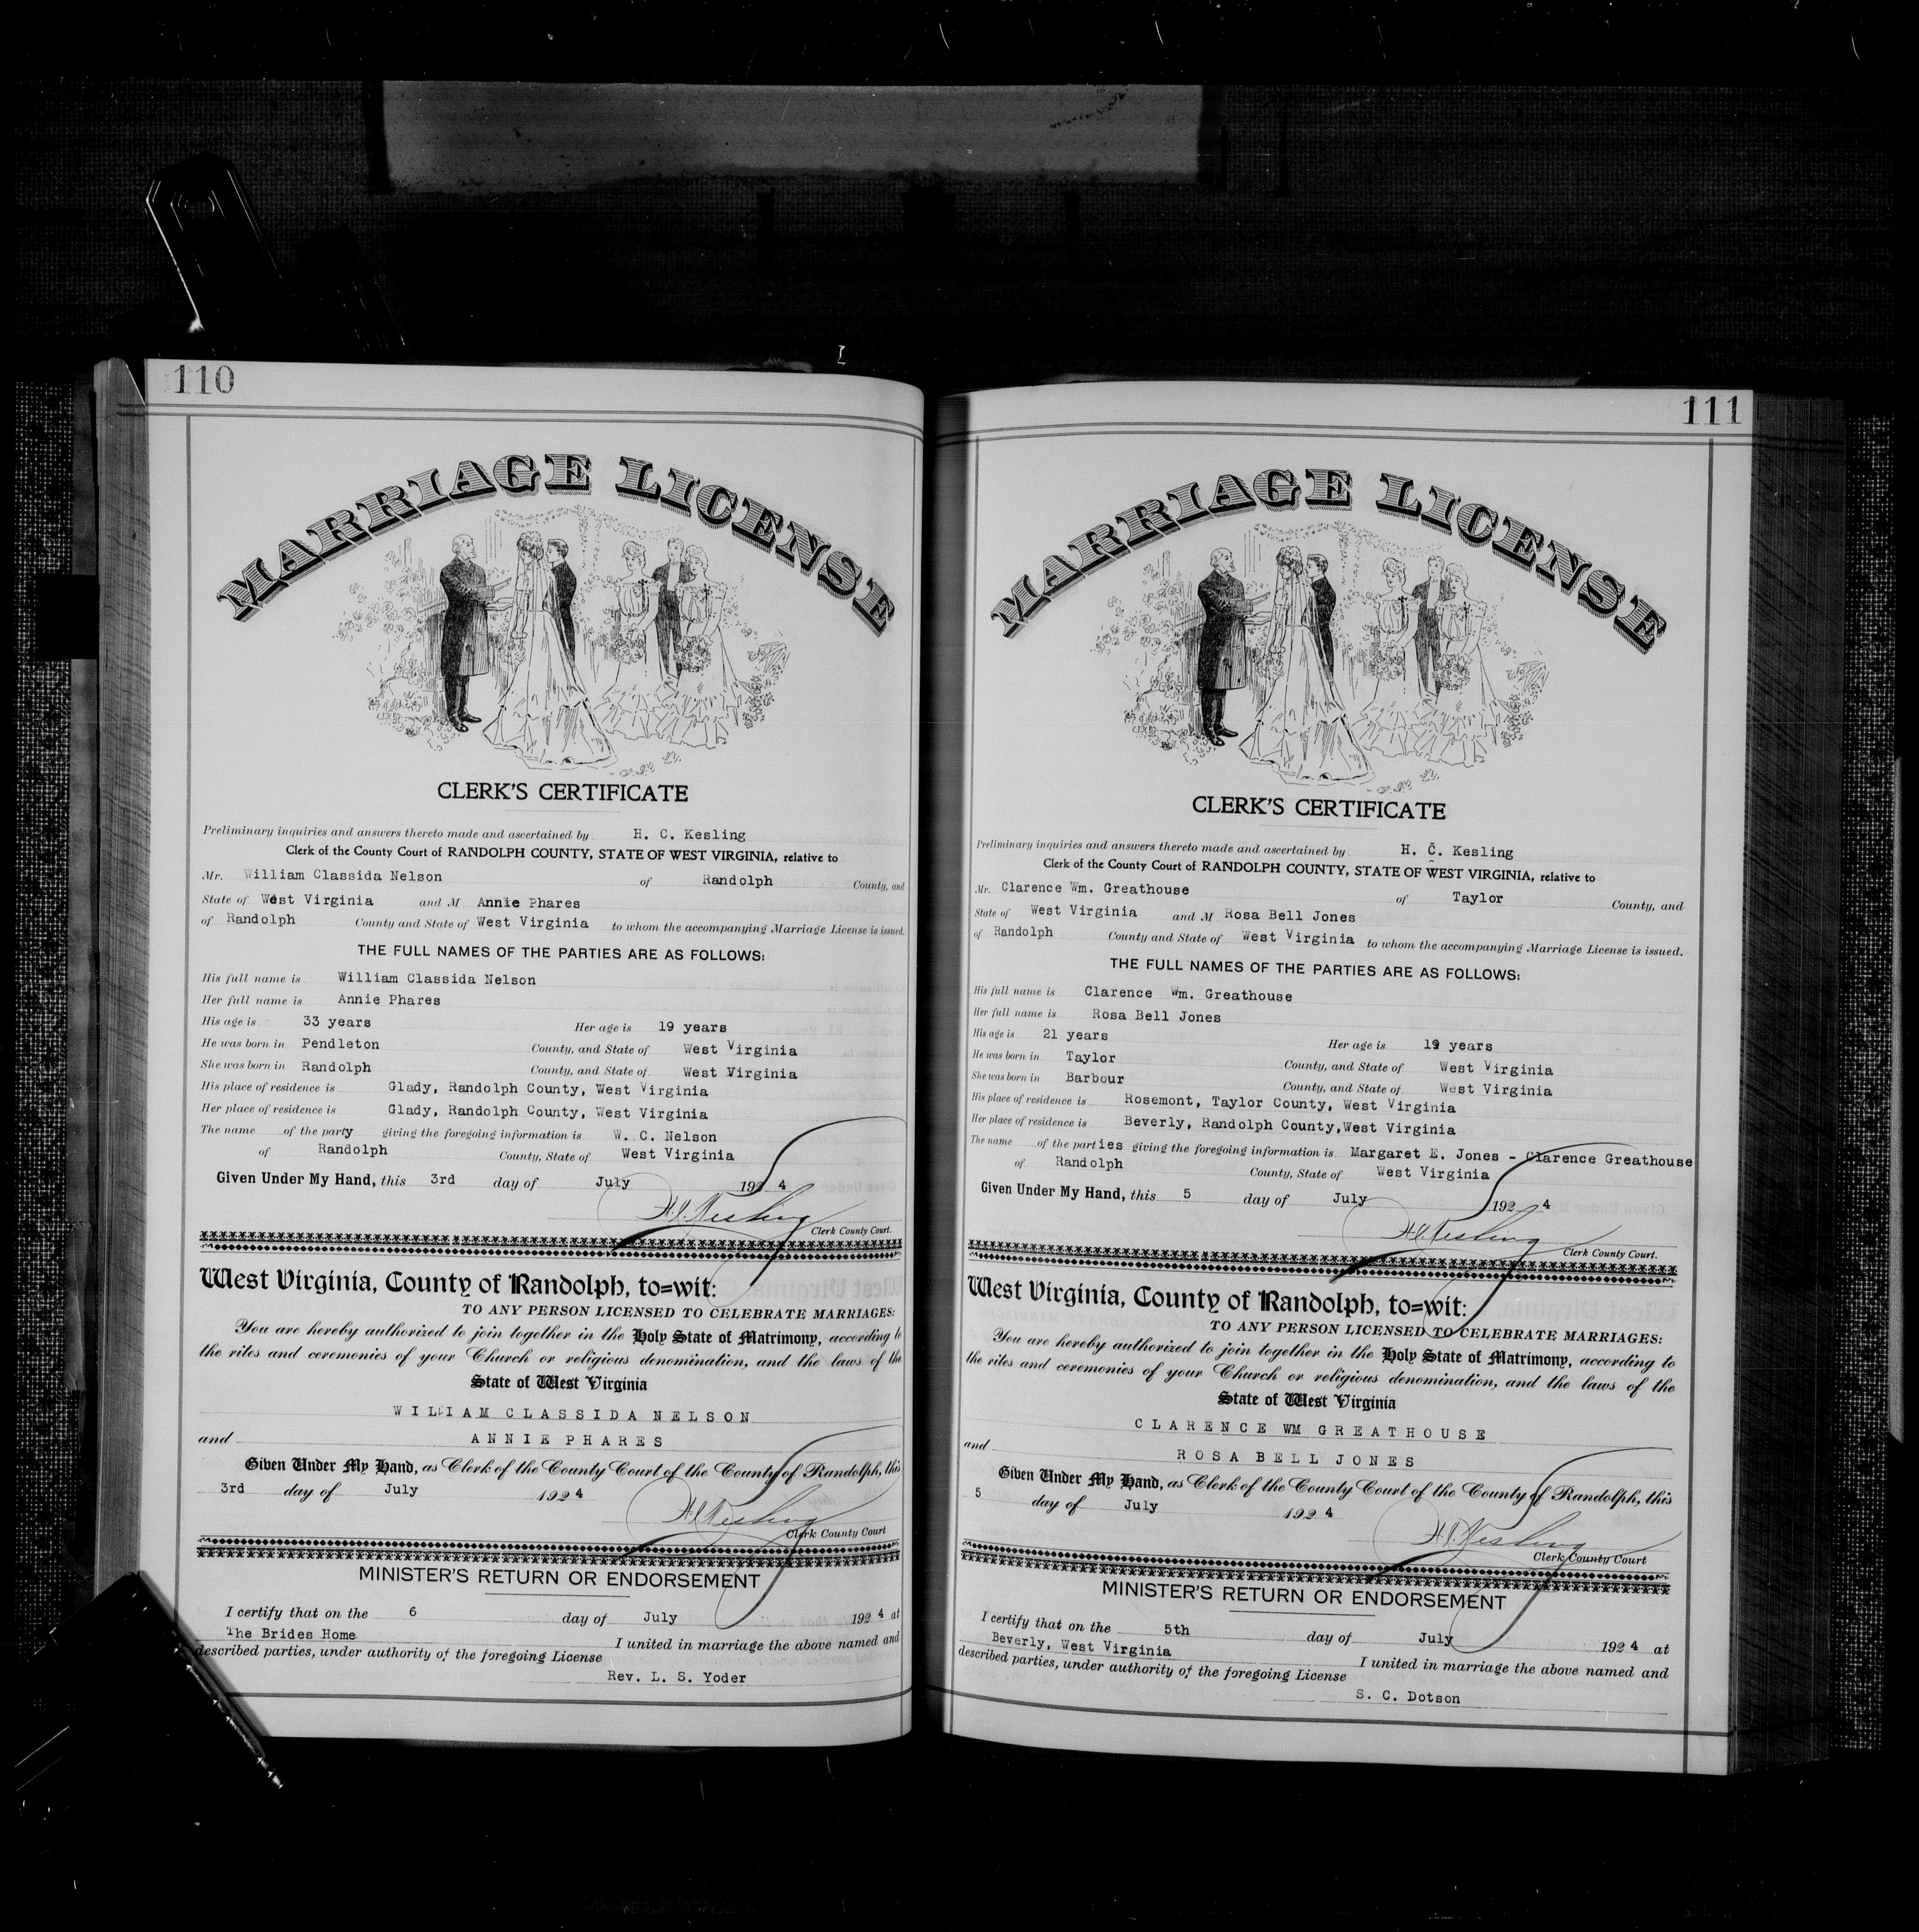 110
MARRIAGE LICENSE
CLERK'S CERTIFICATE
Preliminary inquiries and answers thereto made and ascertained by H. C. Kesling
Clerk of the County Court of RANDOLPH COUNTY, STATE OF WEST VIRGINIA, relative to
Mr. William Classida Nelson of Randolph County, and
State of West Virginia and M Annie Phares
of Randolph County and State of West Virginia to whom the accompanying Marriage License is issued.
THE FULL NAMES OF THE PARTIES ARE AS FOLLOWS:
His full name is William Classida Nelson
Her full name is Annie Phares
His age is 33 years Her age is 19 years
He was born in Pendleton County, and State of West Virginia
She was born in Randolph County, and State of West Virginia
His place of residence is Glady, Randolph County, West Virginia
Her place of residence is Glady, Randolph County, West Virginia
The name of the party giving the foregoing information is W. C. Nelson
of Randolph County, State of West Virginia
Given Under My Hand, this 3rd day of July 192 4
H. C. Kesling
Clerk County Court.
West Virginia, County of Randolph, to=wit:
TO ANY PERSON LICENSED TO CELEBRATE MARRIAGES:
You are hereby authorized to join together in the Holy State of Matrimony, according to
the rites and ceremonies of your Church or religious denomination, and the laws of the
State of West Virginia
WILLIAM CLASSIDA NELSON
and ANNIE PHARES
Given Under My Hand, as Clerk of the County Court of the County of Randolph, this
3rd day of July 192 4
H. C. Kesling
Clerk County Court
MINISTER'S RETURN OR ENDORSEMENT
I certify that on the 6 day of July 192 4 at
The Brides Home I united in marriage the above named and
described parties, under authority of the foregoing License
Rev. L. S. Yoder
111
MARRIAGE LICENSE
CLERK'S CERTIFICATE
Preliminary inquiries and answers thereto made and ascertained by H. C. Kesling
Clerk of the County Court of RANDOLPH COUNTY, STATE OF WEST VIRGINIA, relative to
Mr. Clarence Wm. Greathouse of Taylor County, and
State of West Virginia and M Rosa Bell Jones
of Randolph County and State of West Virginia to whom the accompanying Marriage License is issued.
THE FULL NAMES OF THE PARTIES ARE AS FOLLOWS:
His full name is Clarence Wm. Greathouse
Her full name is Rosa Bell Jones
His age is 21 years Her age is 19 years
He was born in Taylor County, and State of West Virginia
She was born in Barbour County, and State of West Virginia
His place of residence is Rosemont, Taylor County, West Virginia
Her place of residence is Beverly, Randolph County,West Virginia
The name of the parties giving the foregoing information is Margaret E. Jones - Clarence Greathouse
of Randolph County, State of West Virginia
Given Under My Hand, this 5 day of July 192 4
H. C. Kesling
Clerk County Court.
West Virginia, County of Randolph, to=wit:
TO ANY PERSON LICENSED TO CELEBRATE MARRIAGES:
You are hereby authorized to join together in the Holy State of Matrimony, according to
the rites and ceremonies of your Church or religious denomination, and the laws of the
State of West Virginia
CLARENCE WM GREATHOUSE
and ROSA BELL JONES
Given Under My Hand, as Clerk of the County Court of the County of Randolph, this
5 day of July 192 4
H. C. Kesling
Clerk County Court
MINISTER'S RETURN OR ENDORSEMENT
I certify that on the 5th day of July 192 4 at
Beverly, West Virginia I united in marriage the above named and
described parties, under authority of the foregoing License
S. C. Dotson